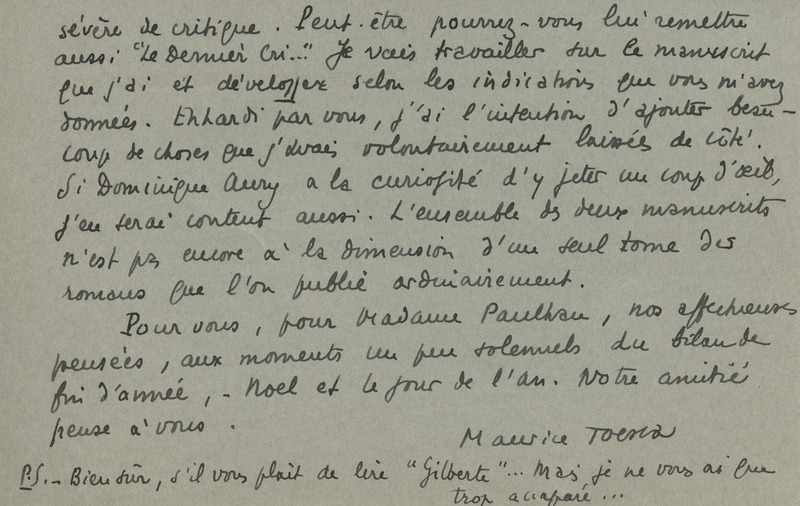 sévère de critique. Peut-être pourrez-vous lui remettre
aussi "Le Dernier Cri..." Je vais travailler sur le manuscrit
que j'ai et développer selon les indications que vous m'avez
données. Enhardi par vous, j'ai l'intention d'ajouter beau-
coup de choses que j'avais volontairement laissées de côté.
Si Dominique Aury a la curiosité d'y jeter un coup d'œil,
j'en serai content aussi. L'ensemble des deux manuscrits
n'est pas encore à la dimension d'un seul tome des
romans que l'on publie ordinairement.
Pour vous, pour Madame Paulhan, nos affectueuses
pensées, aux moments un peu solennels du bilan de
fin d'année, - Noel et le jour de l'an. Notre amitié
pense à vous.
Maurice Toesca
P.S. - Bien sûr, s'il vous plaît de lire "Gilberte"... Mais je ne vous ai que
trop accaparé...